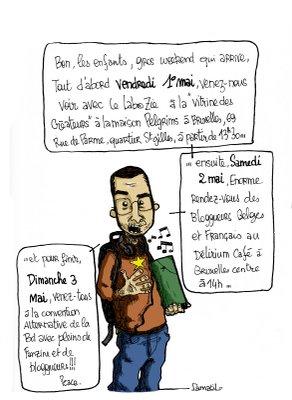 Bon, les enfants, gros weekend qui arrive,
Tout d'abord Vendredi 1er mai, venez-nous
voir avec le Labo Zée à la "vitrine des
créateurs" à la maison Pelgrims à Bruxelles, 69
Rue de Parme, quartier St Gilles, à partir de 17h30...
... ensuite, Samedi
2 mai, Enorme
Rendez-Vous des
Blogueurs Belges
et Français au
Délirium Café à
Bruxelles centre
à 14h ...
...et pour finir,
Dimanche 3
Mai, venez-tous
à la convention
Alternative de la
Bd avec pleins de
Fanzine et de
blogueurs!!!
Peace.